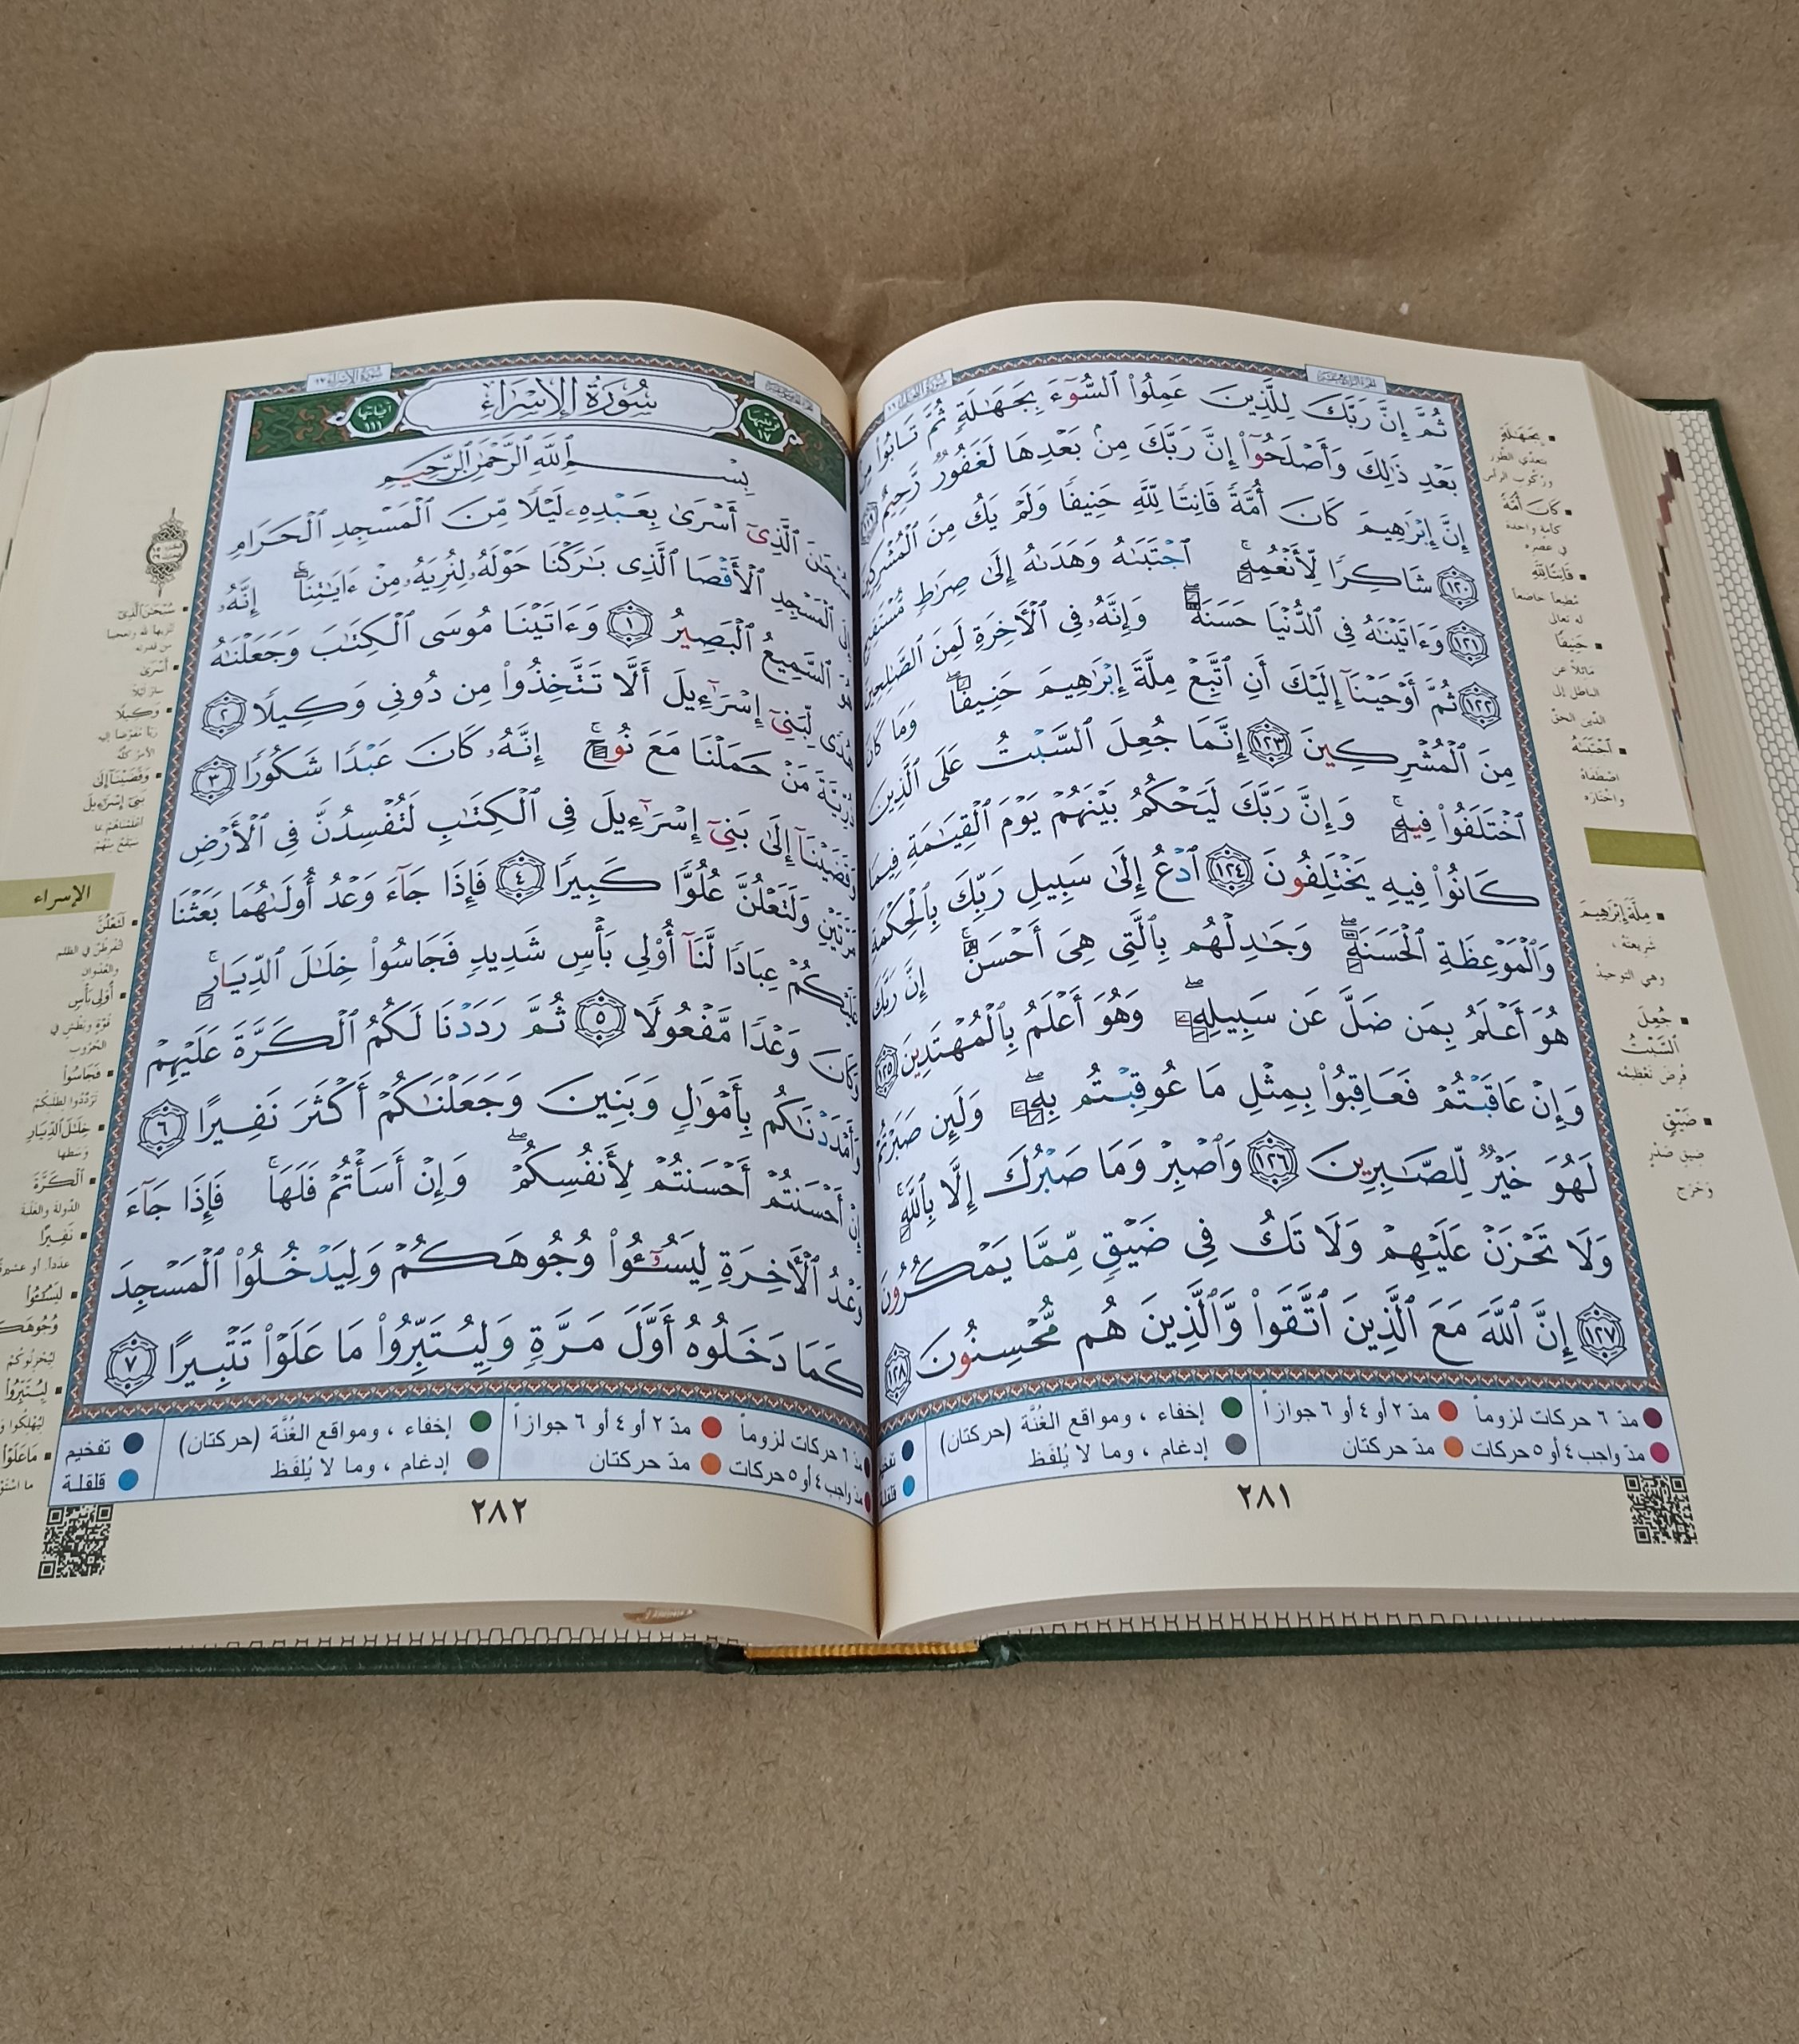 ثُمَّ إِنَّ رَبَّكَ لِلَّذِينَ عَمِلُوا۟ ٱلسُّوٓءَ بِجَهَٰلَةٍ ثُمَّ تَابُوا۟ مِنۢ
بَعْدِ ذَٰلِكَ وَأَصْلَحُوٓا۟ إِنَّ رَبَّكَ مِنۢ بَعْدِهَا لَغَفُورٌ رَّحِيمٌ ١١٩
إِنَّ إِبْرَٰهِيمَ كَانَ أُمَّةً قَانِتًا لِّلَّهِ حَنِيفًا وَلَمْ يَكُ مِنَ ٱلْمُشْرِكِينَ
١٢٠ شَاكِرًا لِّأَنْعُمِهِ ۚ ٱجْتَبَىٰهُ وَهَدَىٰهُ إِلَىٰ صِرَٰطٍ مُّسْتَقِيمٍ
١٢١ وَءَاتَيْنَٰهُ فِى ٱلدُّنْيَا حَسَنَةً ۖ وَإِنَّهُۥ فِى ٱلْأَخِرَةِ لَمِنَ ٱلصَّٰلِحِينَ
١٢٢ ثُمَّ أَوْحَيْنَآ إِلَيْكَ أَنِ ٱتَّبِعْ مِلَّةَ إِبْرَٰهِيمَ حَنِيفًا ۖ وَمَا كَانَ
مِنَ ٱلْمُشْرِكِينَ ١٢٣ إِنَّمَا جُعِلَ ٱلسَّبْتُ عَلَى ٱلَّذِينَ
ٱخْتَلَفُوا۟ فِيهِ ۚ وَإِنَّ رَبَّكَ لَيَحْكُمُ بَيْنَهُمْ يَوْمَ ٱلْقِيَٰمَةِ فِيمَا
كَانُوا۟ فِيهِ يَخْتَلِفُونَ ١٢٤ ٱدْعُ إِلَىٰ سَبِيلِ رَبِّكَ بِٱلْحِكْمَةِ
وَٱلْمَوْعِظَةِ ٱلْحَسَنَةِ ۖ وَجَٰدِلْهُم بِٱلَّتِى هِىَ أَحْسَنُ ۚ إِنَّ رَبَّكَ
هُوَ أَعْلَمُ بِمَن ضَلَّ عَن سَبِيلِهِ ۖ وَهُوَ أَعْلَمُ بِٱلْمُهْتَدِينَ ١٢٥
وَإِنْ عَاقَبْتُمْ فَعَاقِبُوا۟ بِمِثْلِ مَا عُوقِبْتُم بِهِ ۖ وَلَئِن صَبَرْتُمْ
لَهُوَ خَيْرٌ لِّلصَّٰبِرِينَ ١٢٦ وَٱصْبِرْ وَمَا صَبْرُكَ إِلَّا بِٱللَّهِ ۚ
وَلَا تَحْزَنْ عَلَيْهِمْ وَلَا تَكُ فِى ضَيْقٍ مِّمَّا يَمْكُرُونَ
١٢٧ إِنَّ ٱللَّهَ مَعَ ٱلَّذِينَ ٱتَّقَوا۟ وَّٱلَّذِينَ هُم مُّحْسِنُونَ ١٢٨
بِجَهَٰلَةٍ
بتعدّي الطور
وركوب الرأس
كَانَ أُمَّةً
كأمة واحدة
في عصره
قَانِتًا لِلَّهِ
مُطيعاً خاضعاً
له تعالى
حَنِيفًا
مائلاً عن
الباطل إلى
الدّين الحقّ
ٱجْتَبَىٰهُ
اصطفاهُ
واختاره
مِلَّةَ إِبْرَٰهِيمَ
شريعته ،
وهي التوحيدُ
جُعِلَ
ٱلسَّبْتُ
فُرِضَ تعظيمُه
ضَيْقٍ
ضيق صدْرٍ
وَحَرَجٍ
مدّ ٦ حركات لزوماً مدّ ٢ أو ٤ أو ٦ جوازاً إخفاء ، ومواقع الغُنَّة (حركتان)
مدّ واجب ٤ أو ٥ حركات مدّ حركتان إدغام ، وما لا يُلفَظ
٢٨١
سُورَةُ الإِسْرَاءِ ١٧
تَرتيبُها ١٧ سُورَةُ الإِسْرَاءِ آياتُها ١١١
بِسْمِ ٱللَّهِ ٱلرَّحْمَٰنِ ٱلرَّحِيمِ
سُبْحَٰنَ ٱلَّذِىٓ أَسْرَىٰ بِعَبْدِهِۦ لَيْلًا مِّنَ ٱلْمَسْجِدِ ٱلْحَرَامِ
إِلَى ٱلْمَسْجِدِ ٱلْأَقْصَا ٱلَّذِى بَٰرَكْنَا حَوْلَهُۥ لِنُرِيَهُۥ مِنْ ءَايَٰتِنَآ ۚ إِنَّهُۥ
هُوَ ٱلسَّمِيعُ ٱلْبَصِيرُ ١ وَءَاتَيْنَا مُوسَى ٱلْكِتَٰبَ وَجَعَلْنَٰهُ
هُدًى لِّبَنِىٓ إِسْرَٰٓءِيلَ أَلَّا تَتَّخِذُوا۟ مِن دُونِى وَكِيلًا ٢
ذُرِّيَّةَ مَنْ حَمَلْنَا مَعَ نُوحٍ ۚ إِنَّهُۥ كَانَ عَبْدًا شَكُورًا ٣
وَقَضَيْنَآ إِلَىٰ بَنِىٓ إِسْرَٰٓءِيلَ فِى ٱلْكِتَٰبِ لَتُفْسِدُنَّ فِى ٱلْأَرْضِ
مَرَّتَيْنِ وَلَتَعْلُنَّ عُلُوًّا كَبِيرًا ٤ فَإِذَا جَآءَ وَعْدُ أُولَىٰهُمَا بَعَثْنَا
عَلَيْكُمْ عِبَادًا لَّنَآ أُو۟لِى بَأْسٍ شَدِيدٍ فَجَاسُوا۟ خِلَٰلَ ٱلدِّيَارِ ۚ
وَكَانَ وَعْدًا مَّفْعُولًا ٥ ثُمَّ رَدَدْنَا لَكُمُ ٱلْكَرَّةَ عَلَيْهِمْ
وَأَمْدَدْنَٰكُم بِأَمْوَٰلٍ وَبَنِينَ وَجَعَلْنَٰكُمْ أَكْثَرَ نَفِيرًا ٦
إِنْ أَحْسَنتُمْ أَحْسَنتُمْ لِأَنفُسِكُمْ ۖ وَإِنْ أَسَأْتُمْ فَلَهَا ۚ فَإِذَا جَآءَ
وَعْدُ ٱلْأَخِرَةِ لِيَسُـُٔوا۟ وُجُوهَكُمْ وَلِيَدْخُلُوا۟ ٱلْمَسْجِدَ
كَمَا دَخَلُوهُ أَوَّلَ مَرَّةٍ وَلِيُتَبِّرُوا۟ مَا عَلَوْا۟ تَتْبِيرًا ٧
سُبْحَٰنَ ٱلَّذِى
أَسْرَىٰ
وَكِيلًا
وَقَضَيْنَآ إِلَىٰ
بَنِىٓ إِسْرَٰٓءِيلَ
الإسراء
لَتَعْلُنَّ
لتُفرطُنّ في الظلم
والعُدوان
أُو۟لِى بَأْسٍ
قُوّةٍ وبَطْشٍ في
الحُروب
فَجَاسُوا۟
تَرَدَّدُوا لِطَلبكُمْ
خِلَٰلَ ٱلدِّيَارِ
وَسطها
ٱلْكَرَّةَ
الدّولة والغلبة
نَفِيرًا
عدداً أو
لِيَسُـُٔوا۟
لِيُتَبِّرُوا۟
مَا عَلَوْا۟
مدّ ٦ حركات لزوماً مدّ ٢ أو ٤ أو ٦ جوازاً إخفاء ، ومواقع الغُنَّة (حركتان) تفخيم
مدّ واجب ٤ أو ٥ حركات مدّ حركتان إدغام ، وما لا يُلفَظ قلقلة
٢٨٢